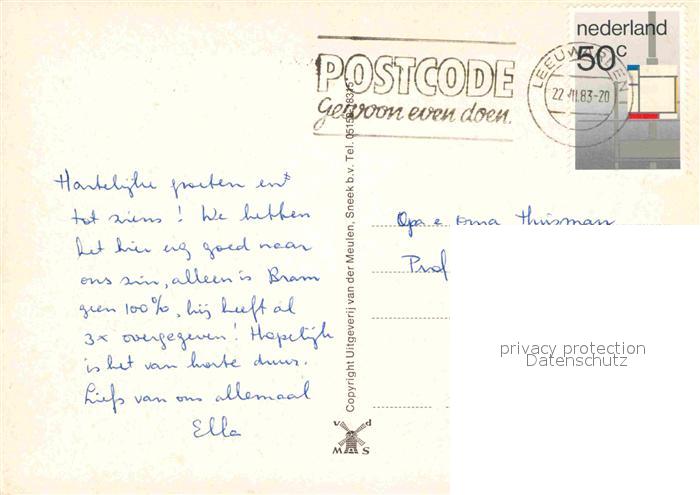 nederland
50c
POSTCODE
Gewoon even doen.
LEEUWARDEN
22.VII.83-20
Hartelijke groeten en
tot ziens! We hebben
het hier erg goed naar
ons zin, alleen is Bram
geen 100%, hij heeft al
3x overgegeven! Hopelijk
is het van korte duur.
Liefs van ons allemaal
Ella
Copyright Uitgeverij van der Meulen, Sneek b.v. Tel. 05150-
v d
M S
Opa e oma Huisman
Prof
privacy protection
Datenschutz